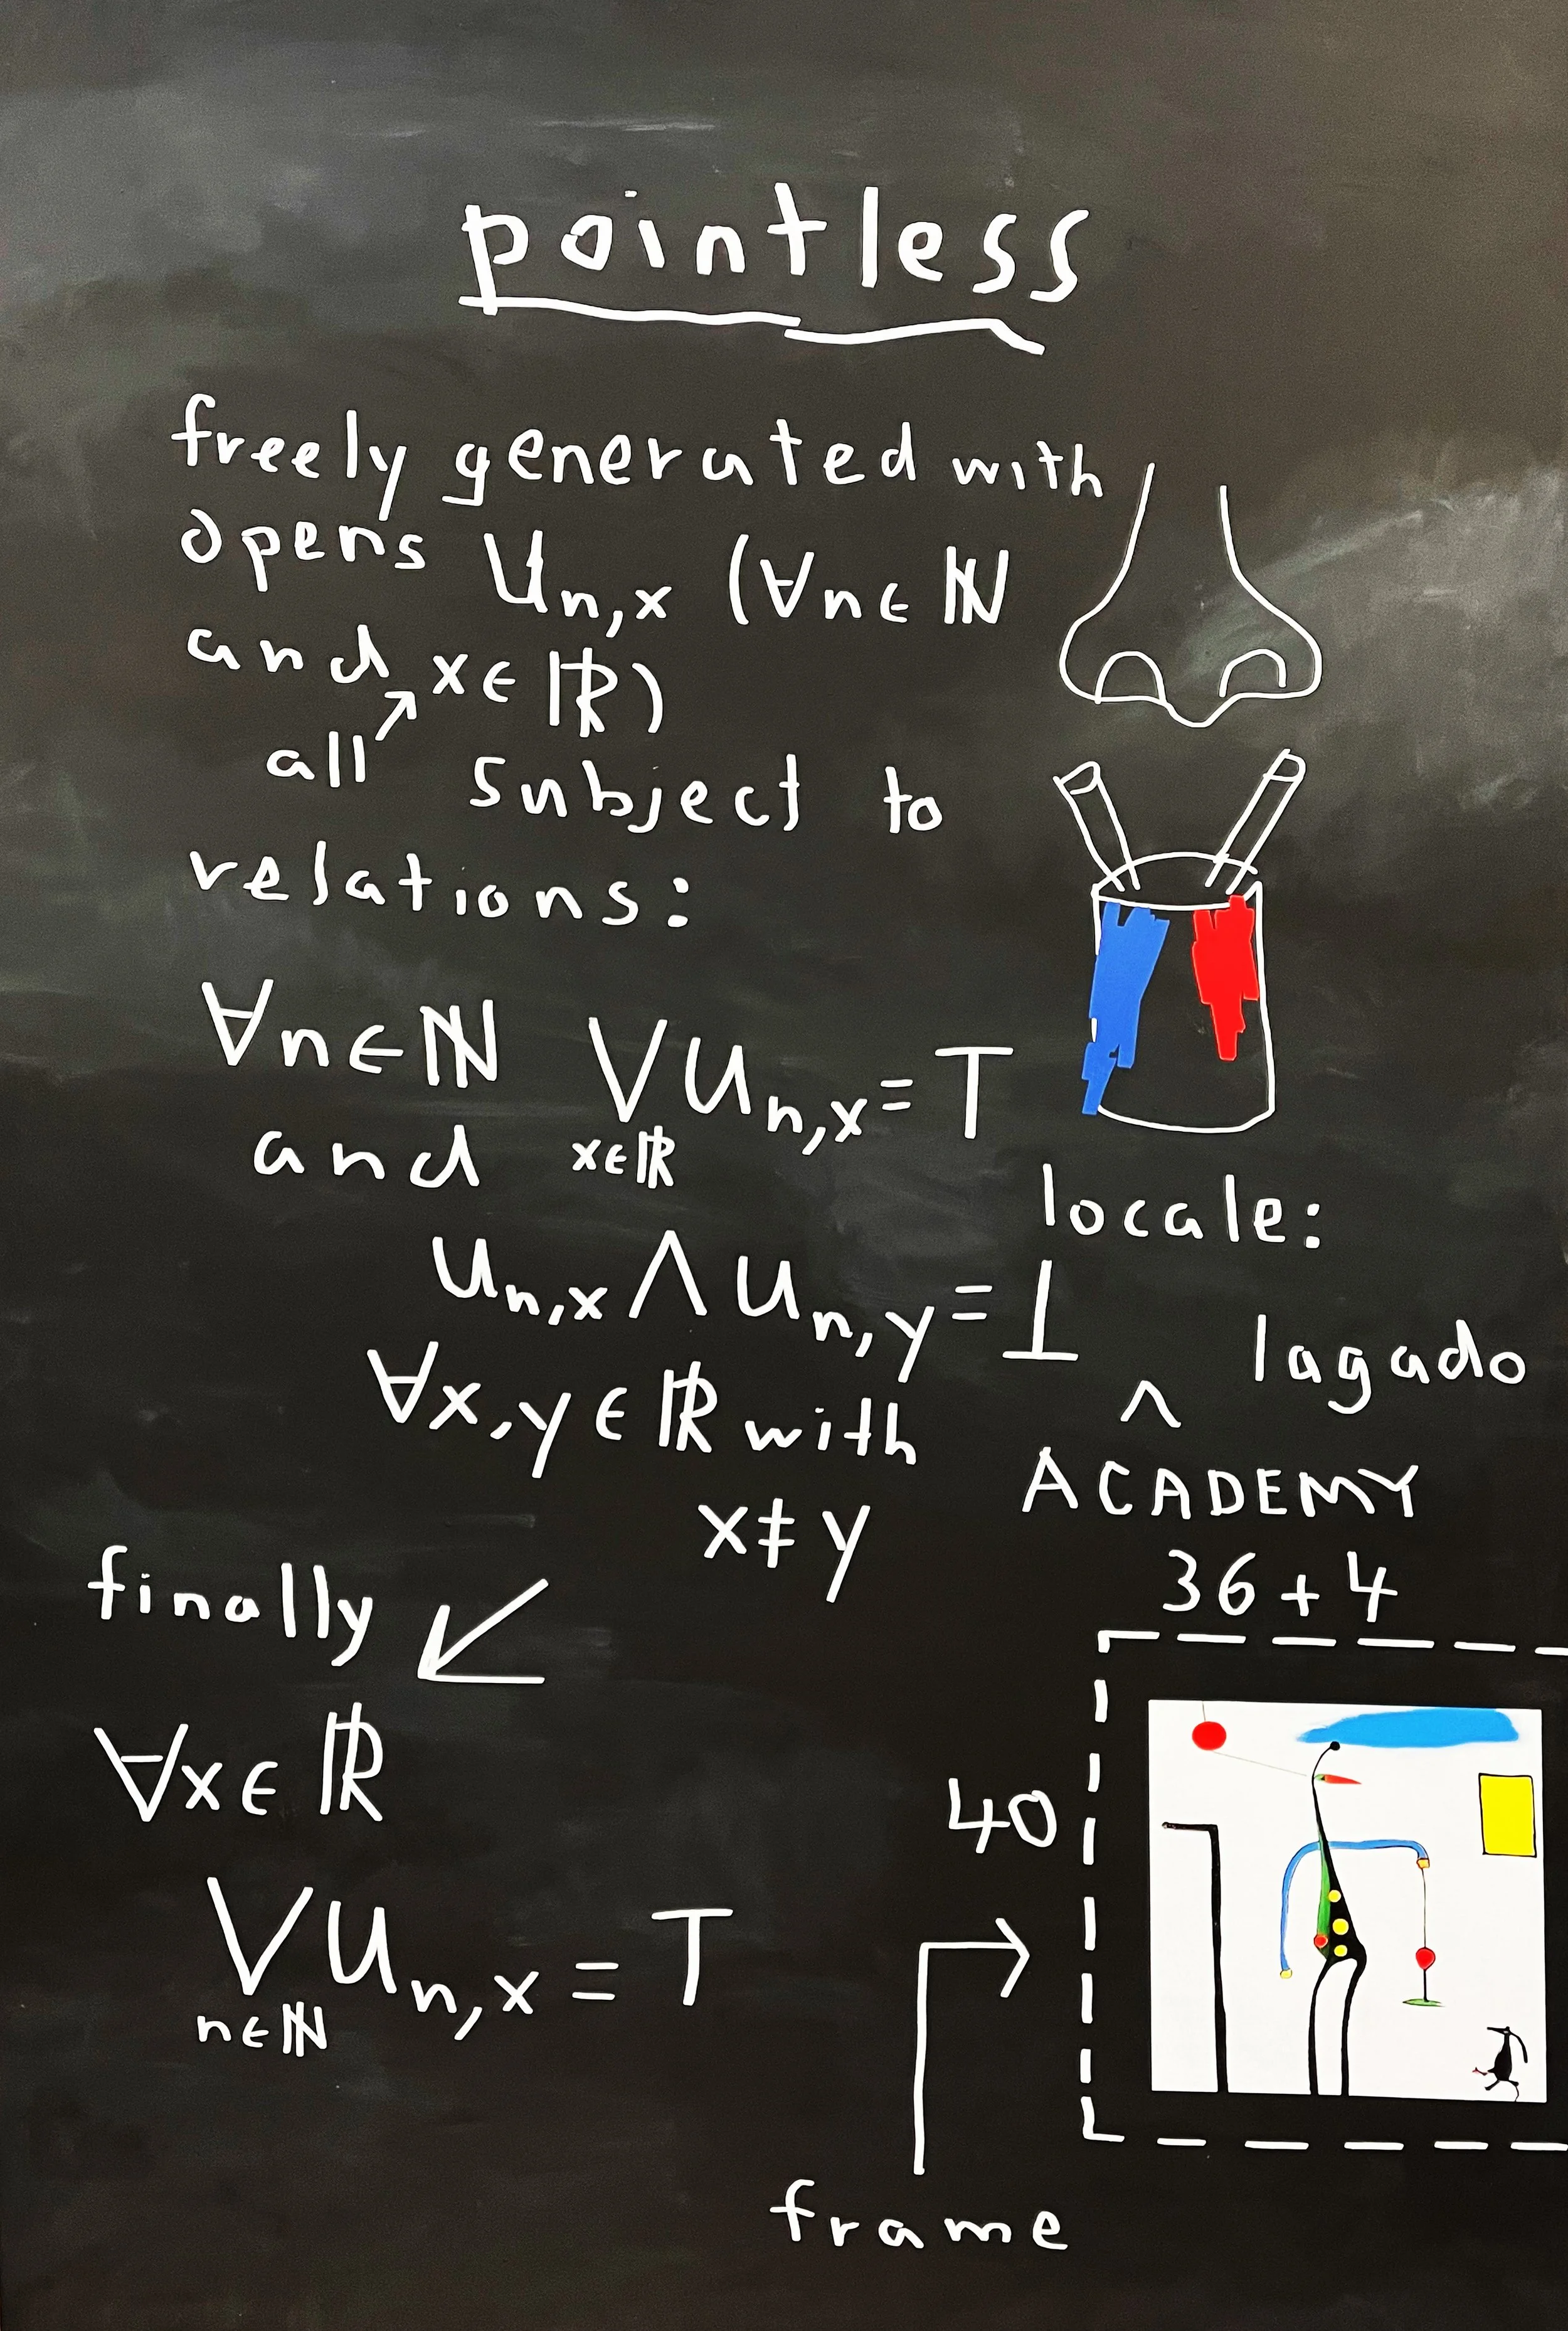 pointless
freely generated with
opens Un,x (∀n∈ℕ
and x∈ℝ)
all
subject to
relations:
∀n∈ℕ ⋁x∈ℝ Un,x = ⊤
and
Un,x ∧ Un,y = ⊥
∀x,y∈ℝ with
x≠y
finally ↙
∀x∈ℝ
⋁n∈ℕ Un,x = ⊤
locale:
lagado
^
ACADEMY
36+4
40
frame